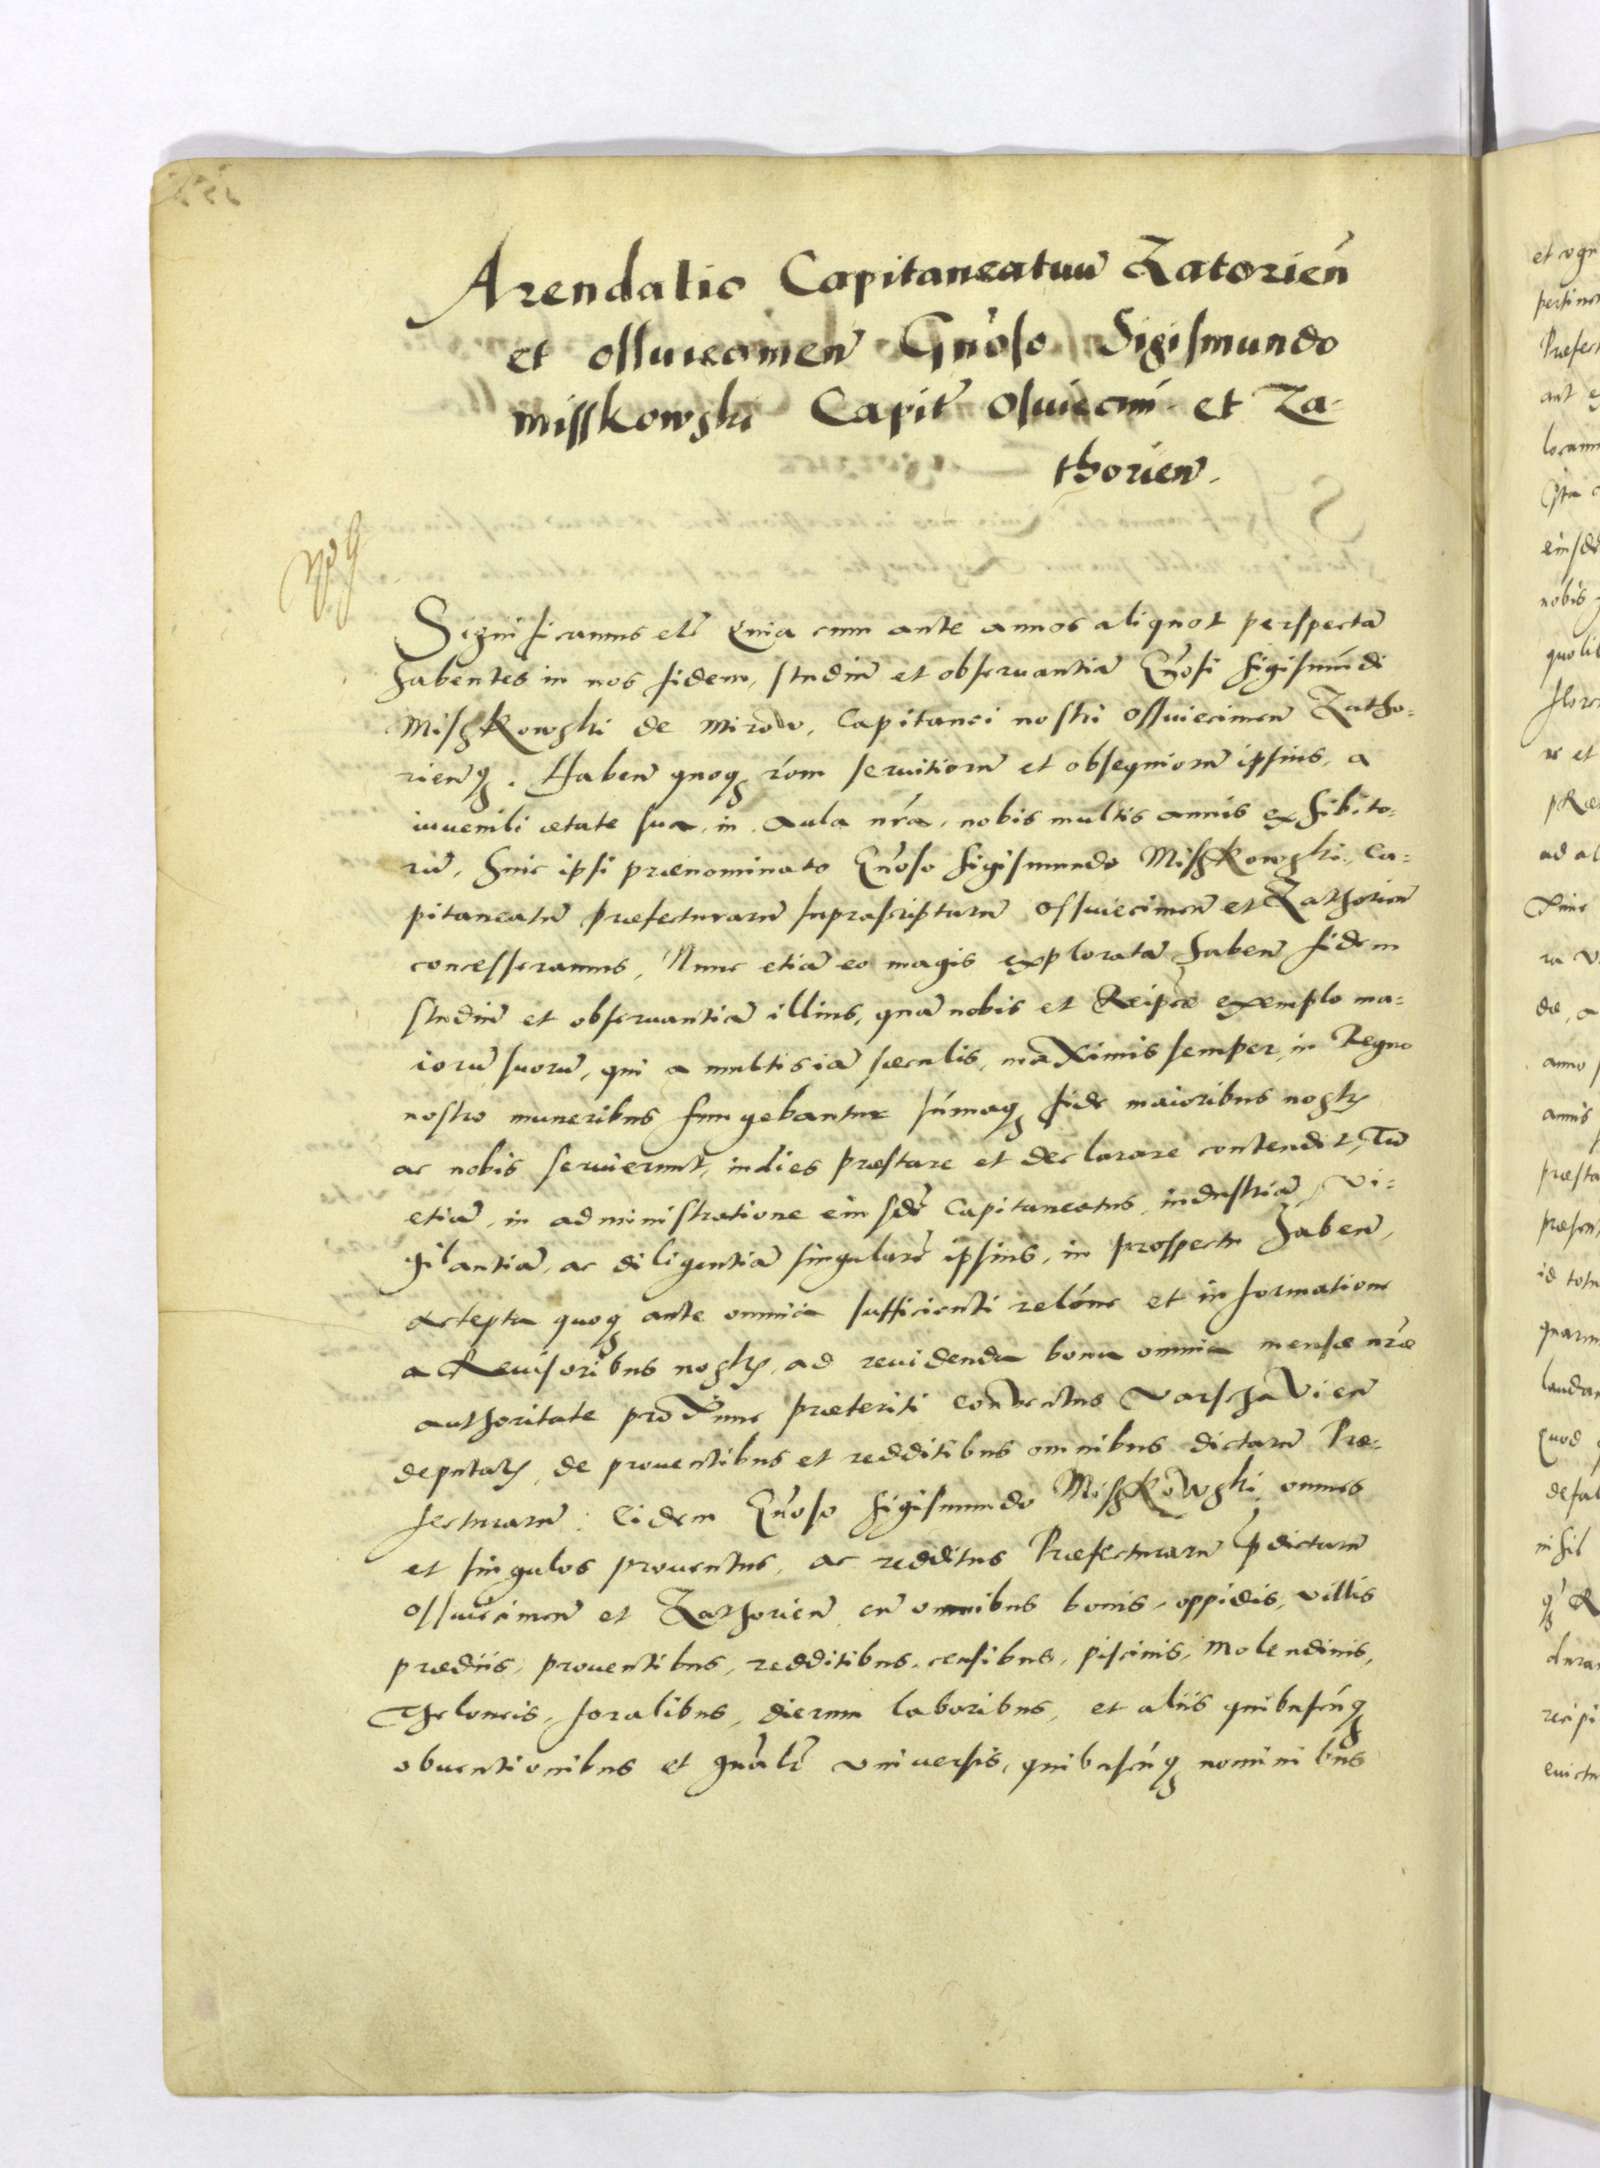 Arendatio Capitaneatuū Zatorień
et Ossuiecimeñ Gnoso Sigismundo
Misskowski Capit Osuiecimi et Za-
thorień.
Significamus etc̄ Quia cum ante annos aliquot perspectā
habentes in nos fidem, studiū et obseruantiā Gnosi Sigismūdi
Mischkowski de Mirow, Capitanei nostri Ossuiecimeñ Zatho-
rieñq̃. Habeñ quoq̃ rōm seruitiorū et obsequiorū ipsius, a
iuuenili ætate sua, in Aula nrā, nobis multis annis exhibito-
rū, huic ipsi prænominato Gnoso Sigismundo Mischkowski, Ca-
pitaneatū præfecturarū suprascripturū Ossuiecimeñ et Zathorieñ
concesseramus, Nunc etiā eo magis exploratā habeñ fidem
studiū et obseruantiā illius, quā nobis et Reipcæ exemplo ma-
iorū suorū, qui a multis iā sæculis, maximis semper in Regno
nostro muneribus fungebantur sūmaq̃ fide maioribus nostris
ac nobis seruierunt, indies præstare et declarare contendit, Tū
etiā, in administratione eiusdē Capitaneatus, industriā, Vi-
gilantiā, ac diligentiā singularē ipsius, in prospectu habeñ,
Accepta quoq̃ ante omnia sufficienti relōne et informatione
a Reuisoribus nostris, ad reuidenda bona omnia mensæ nræ
authoritate proxime præteriti conventus Varschavieñ
deputatis, de prouentibus et redditibus omnibus dictarū Præ-
fecturarū: Eidem Gnoso Sigismundo Mischkowski, omnes
et singulos prouentus, ac redditus Præfecturarū p̄dictarū
Ossuiecimeñ et Zathorieñ, cū omnibus bonis, oppidis, villis
prædiis, prouentibus, redditibus, censibus, piscinis, Molendinis,
Theloneis, foralibus, dierum laboribus, et aliis quibuscūq̃
obuentionibus et gnālr̄ vniuersis, quibuscūq̃ nominibus